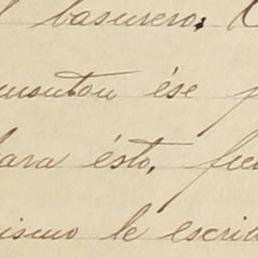 l basurero;
monton ése p
lara ésto, fue
ismo le escrib